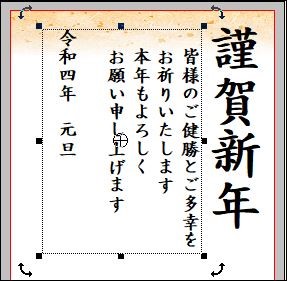 謹賀新年
皆様のご健勝とご多幸を
お祈りいたします
本年もよろしく
お願い申し上げます
令和四年　元旦